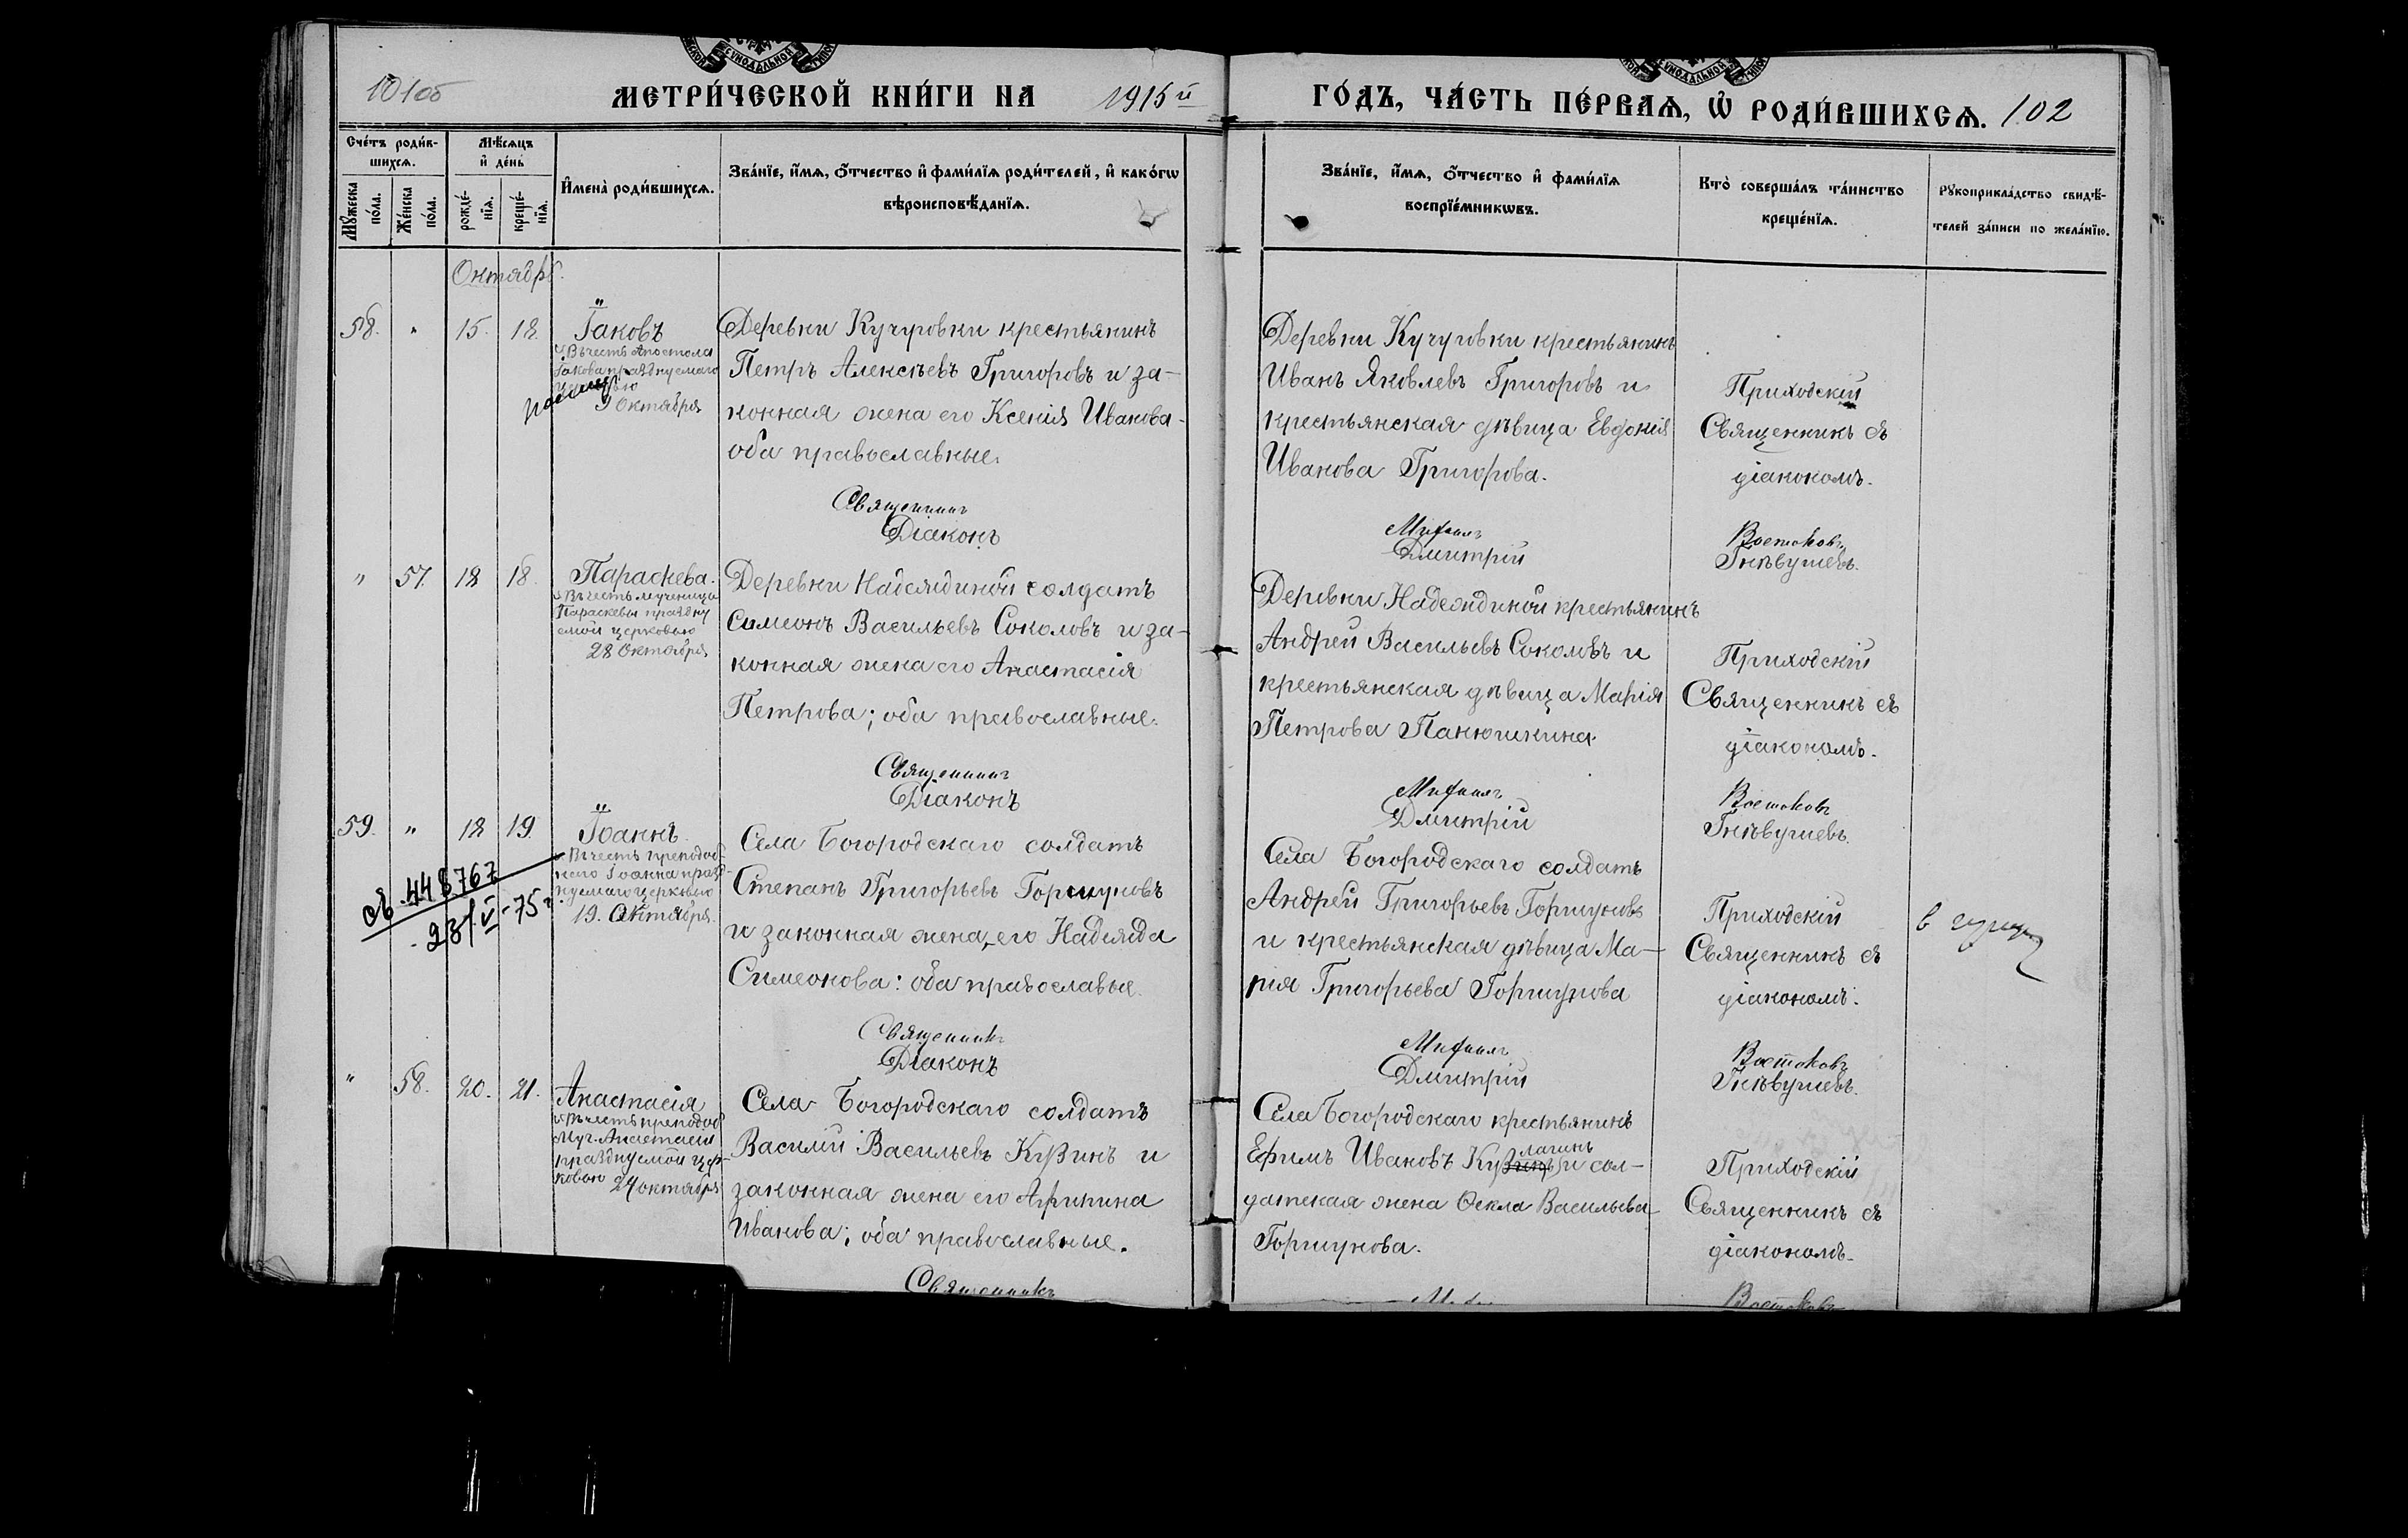 101об
МЕТРИ́ЧЕСКОЙ КНИ́ГИ НА 1915й
ГО́ДЪ, ЧА́СТЬ ПЕ́РВАѦ, Ѡ҆ РОДИ́ВШИХСѦ. 102
Сче́тъ роди́в-
шихсѧ.
Мѣ́сѧцъ
и҆ де́нь
Мꙋ́жеска
по́ла.
Же́нска
по́ла.
рожде́-
нїѧ.
креще́-
нїѧ.
И҆мена̀ роди́вшихсѧ.
Зва́нїе, и҆́мѧ, ѻ҆́тчество и҆ фами́лїѧ роди́телей, и҆ како́гѡ
вѣроисповѣ́данїѧ.
Зва́нїе, и҆́мѧ, ѻ҆́тчество и҆ фами́лїѧ
воспрїе́мникѡвъ.
Кто̀ соверша́лъ та́инство
креще́нїѧ.
Рꙋкоприкла́дство свидѣ́-
телей за́писи по жела́нїю.
Октябрь.
58. " 15. 18. Іаковъ
Въ честь Апостола
Іакова празднуемаго
церковью
9 Октября
Деревни Кучуровки крестьянинъ
Петръ Алексѣевъ Григоровъ и за-
конная жена его Ксенія Иванова-
оба православные.
Деревни Кучуровки крестьянинъ
Иванъ Яковлевъ Григоровъ и
крестьянская дѣвица Евдокія
Иванова Григорова.
Приходскій
Священникъ съ
діакономъ.
Священникъ Михаилъ Востоковъ
Діаконъ Дмитрій Гнѣвушевъ.
" 57. 18 18. Параскева.
Въ честь мученицы
Параскевы праздну
емой церковью
28 Октября
Деревни Надеждиной солдатъ
Симеонъ Васильевъ Соколовъ и за-
конная жена его Анастасія
Петрова; оба православные.
Деревни Надеждиной крестьянинъ
Андрей Васильевъ Соколовъ и
крестьянская дѣвица Марія
Петрова Панюшкина.
Приходскій
Священникъ съ
діакономъ.
Священникъ Михаилъ Востоковъ
Діаконъ Дмитрій Гнѣвушевъ.
59. " 18 19. Іоаннъ.
Въ честь преподоб-
наго Іоанна празд-
нуемаго церковью
19. Октября.
448767
Села Богородскаго солдатъ
Степанъ Григорьевъ Горшуновъ
и законная жена его Надежда
Симеонова: оба православые.
Села Богородскаго солдатъ
Андрей Григорьевъ Горшуновъ
и крестьянская дѣвица Ма-
рія Григорьева Горшунова
Приходскій
Священникъ съ
діакономъ.
Священникъ Михаилъ Востоковъ
Діаконъ Дмитрій Гнѣвушевъ.
" 58. 20. 21. Анастасія
Въ честь преподоб
муч. Анастасіи
празднуемой цер-
ковью 29 октября
Села Богородскаго солдатъ
Василій Васильевъ Кузинъ и
законная жена его Агрипина
Иванова; оба православные.
Села Богородскаго крестьянинъ
лагинъ
Ефимъ Ивановъ Кузинъ и сол-
датская жена Ѳекла Васильева
Горшунова.
Приходскій
Священникъ съ
діакономъ.
Священникъ Востоковъ